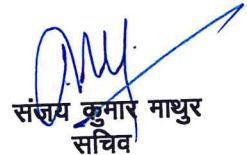 संजय कुमार माथुर
सचिव